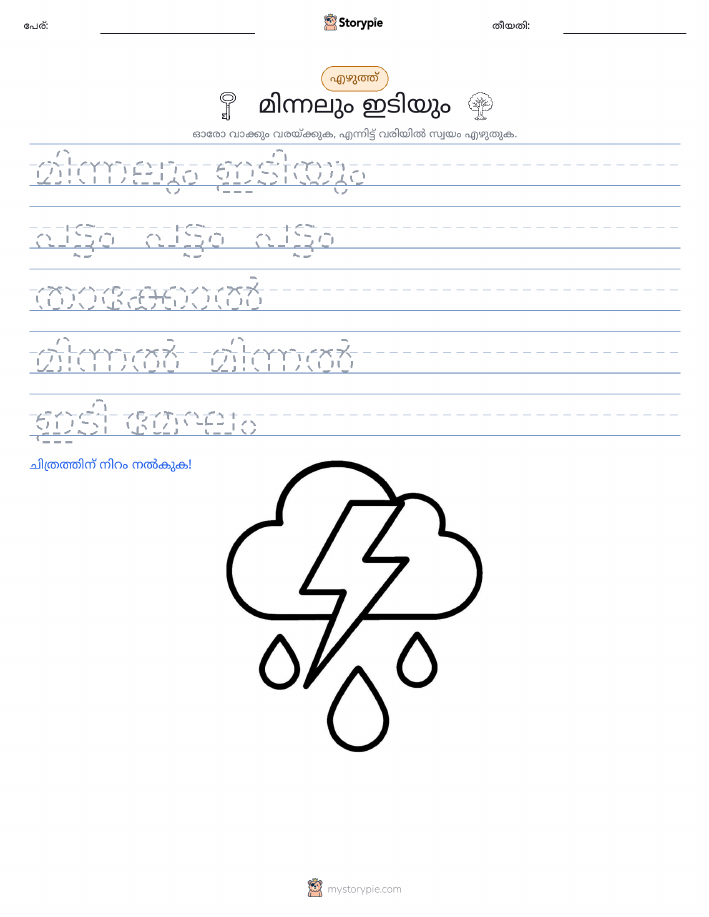 പേര്:
Storypie
തീയതി:
എഴുത്ത്
മിന്നലും ഇടിയും
ഓരോ വാക്കും വരയ്ക്കുക, എന്നിട്ട് വരിയിൽ സ്വയം എഴുതുക.
മിന്നലും ഇടിയും
പട്ടം പട്ടം പട്ടം
താക്കോൽ
മിന്നൽ മിന്നൽ
ഇടി മേഘം
ചിത്രത്തിന് നിറം നൽകുക!
mystorypie.com